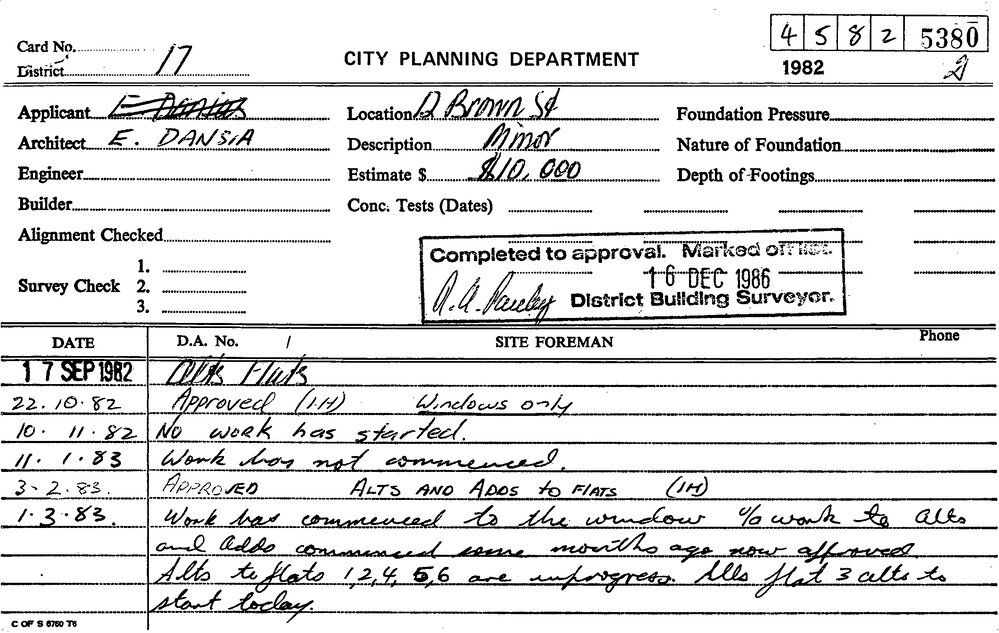 4 5 8 2 5380
Card No.
CITY PLANNING DEPARTMENT
1982 2
District 17
Applicant E Dansia
Location 12 Brown St
Foundation Pressure
Architect E. DANSIA
Description Minor
Nature of Foundation
Engineer
Estimate $ $10,000
Depth of Footings
Builder
Conc. Tests (Dates)
Alignment Checked
Completed to approval. Marked off list.
Survey Check 1.
2.
3.
16 DEC 1986
District Building Surveyor.
DATE D.A. No. / SITE FOREMAN Phone
17 SEP 1982 Alts Flats
22.10.82 Approved (IH) Windows only
10. 11. 82 No work has started.
11. 1.83 Work has not commenced.
3-2.83. APPROVED ALTS AND ADDS to FlATS (IH)
1.3.83. Work has commenced to the window % work to alts
and adds commenced some months ago now approved.
Alts to flats 1,2,4,5,6 are inprogress. flat 3 alts to
start today.
C OF S 6760 T6